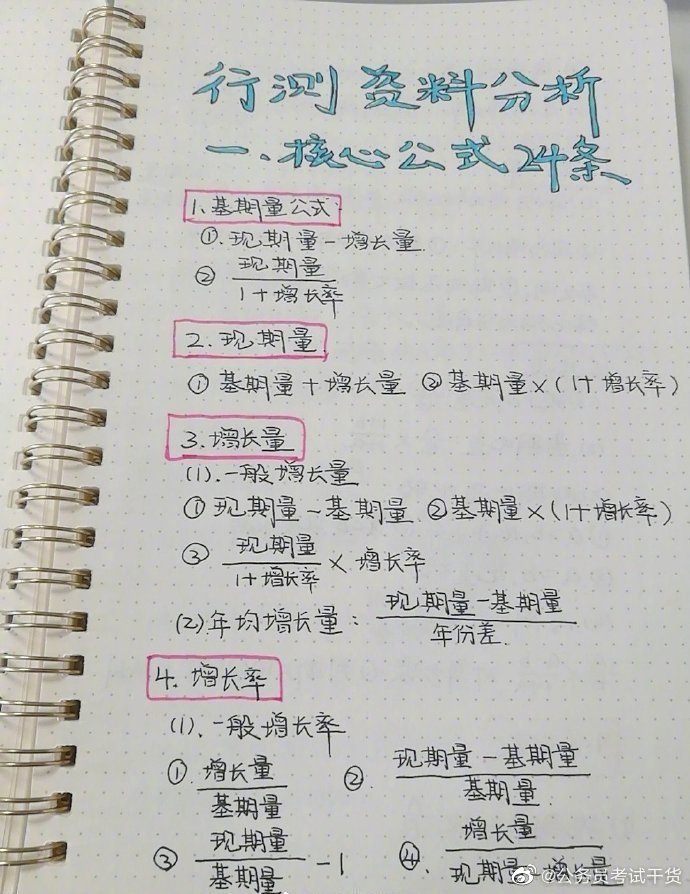 行测资料分析
一、核心公式24条
1.基期量公式
①.现期量-增长量
② 现期量
1+增长率
2.现期量
①基期量+增长量 ②基期量×(1+增长率)
3.增长量
(1).一般增长量
①现期量-基期量 ②基期量×(1+增长率)
③ 现期量
1+增长率 × 增长率
(2)年均增长量: 现期量-基期量
年份差.
4.增长率
(1).一般增长率
① 增长量
基期量
② 现期量-基期量
基期量
③ 现期量
基期量 -1
④. 增长量
现期量-增长量
@公务员考试干货